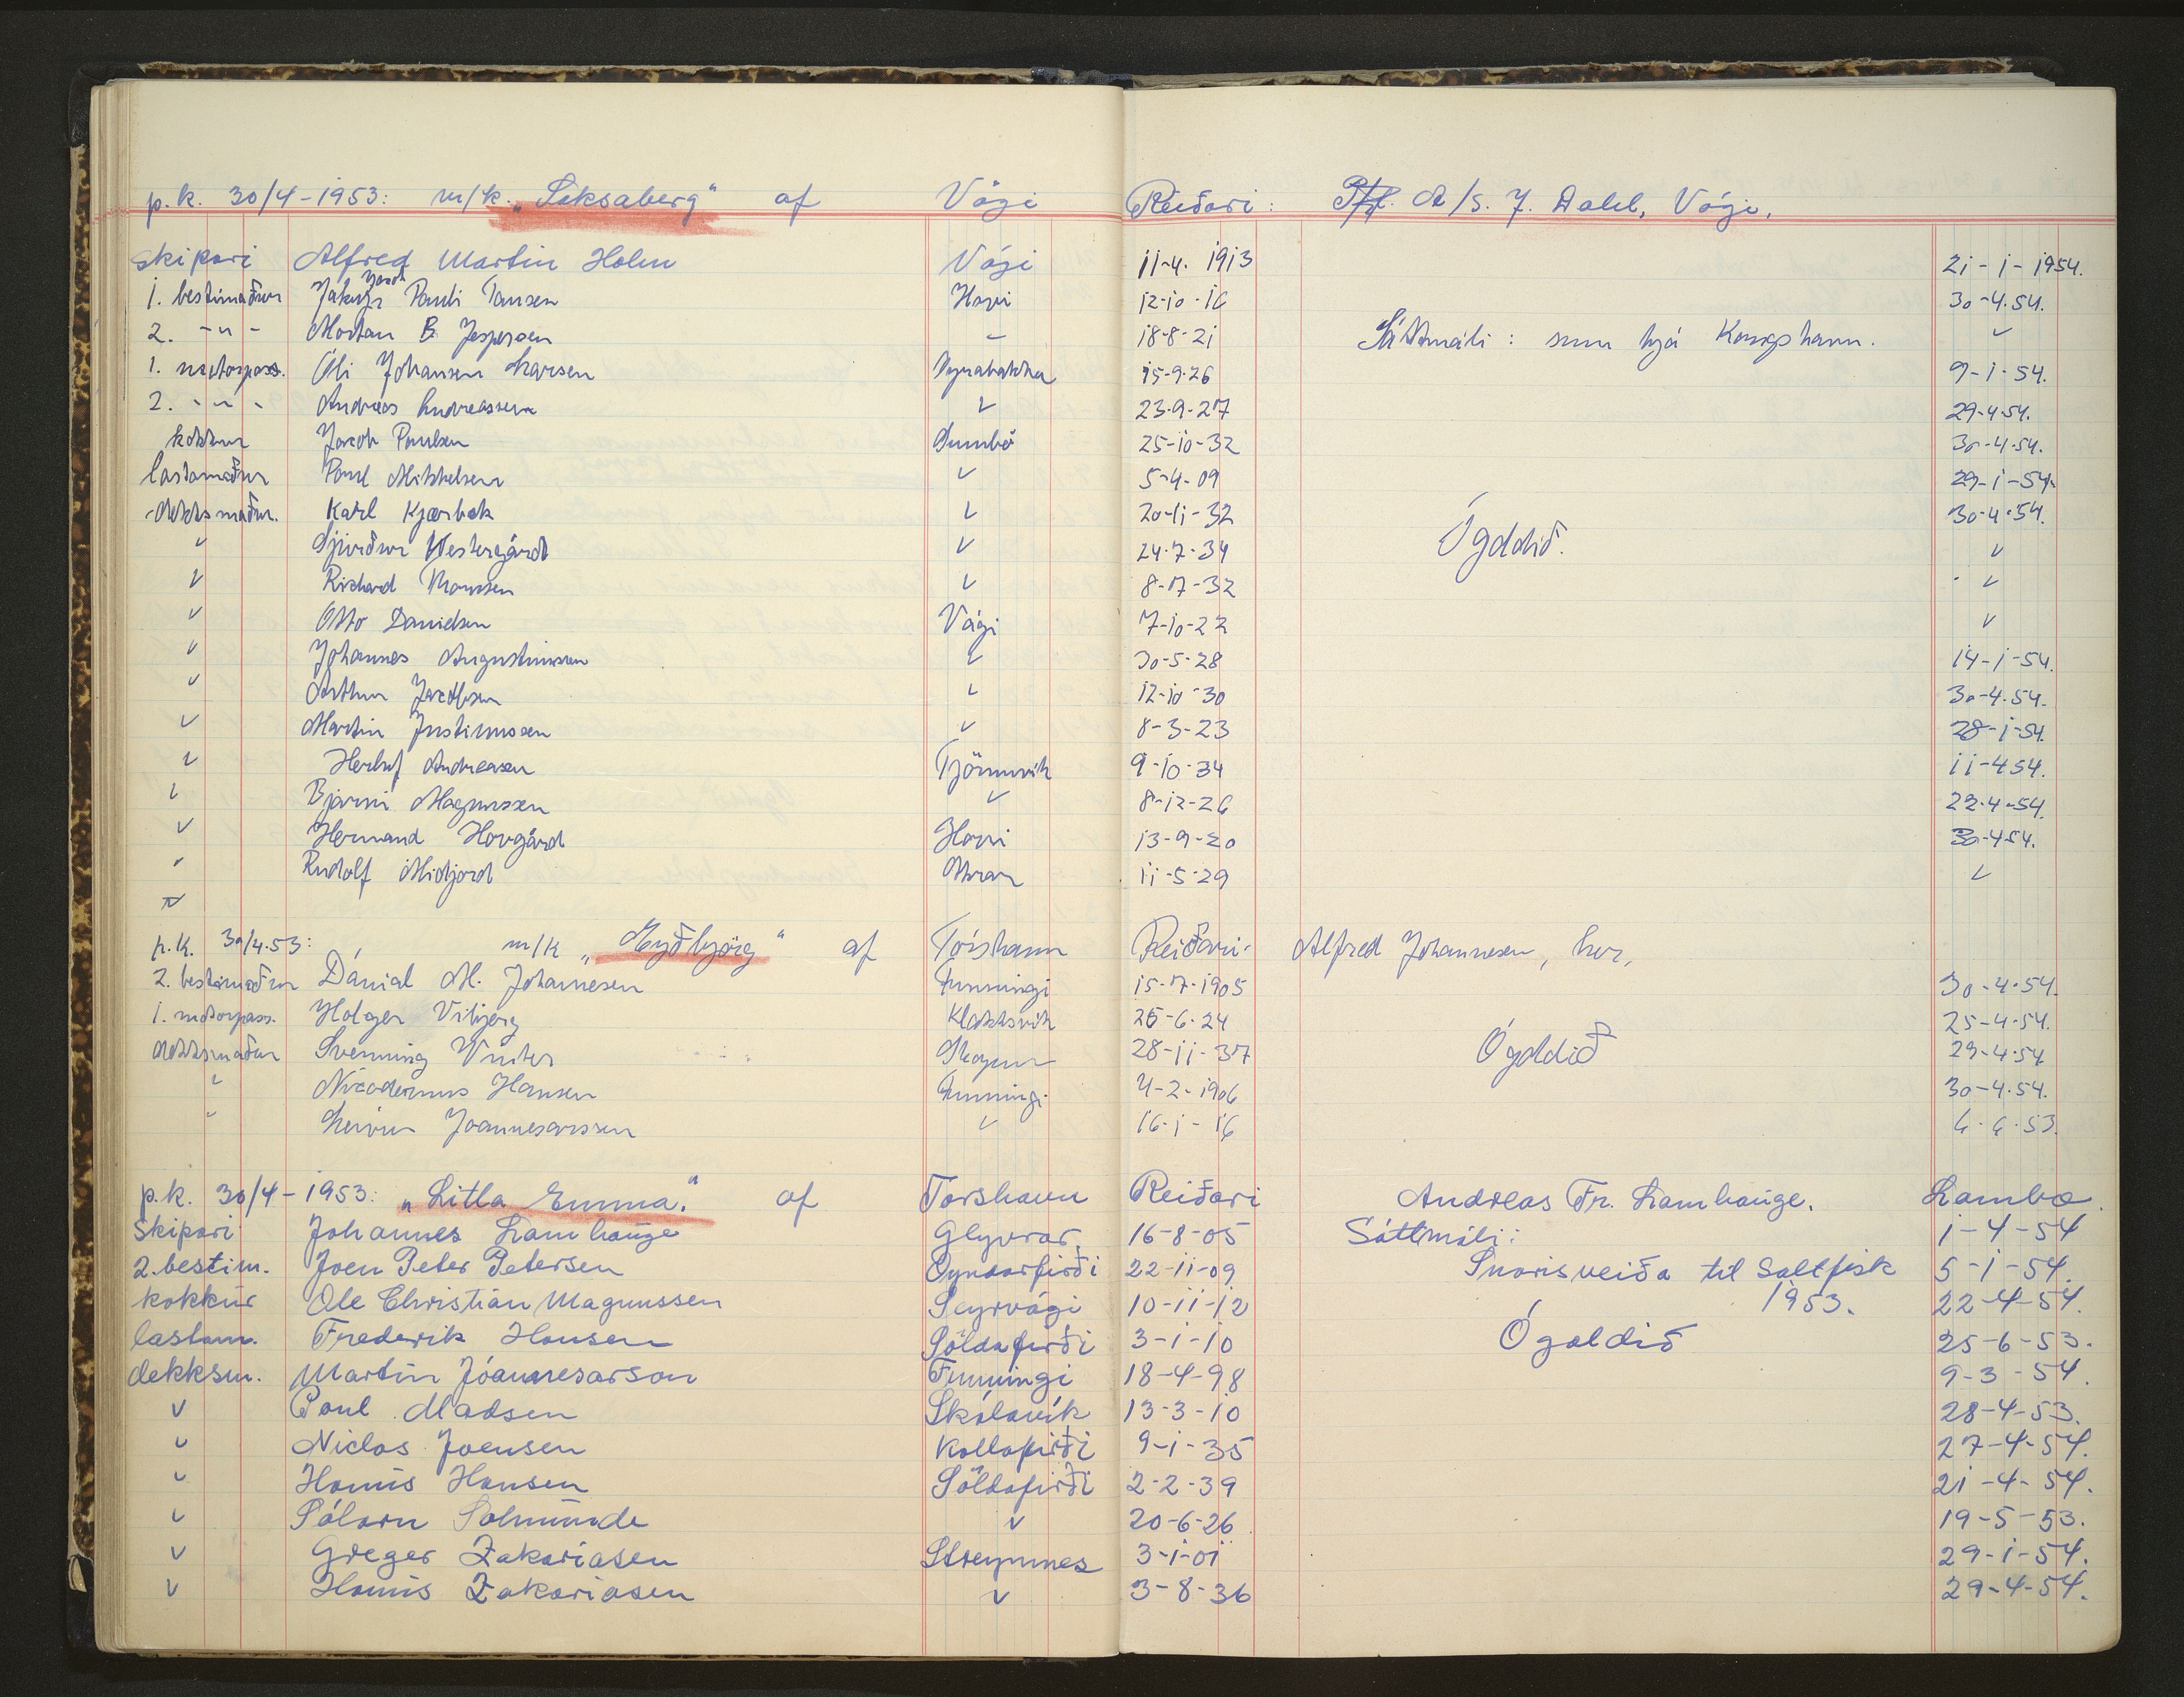 p.k. 30/4-1953: m/k. „Saksaberg“ af Vági Reiðari: P/f. A/s. J. Dahl, Vági.
skipari Alfred Martin Holm Vági 11-4. 1913 21-1-1954.
1. bestimaður Jacob Pauli Hansen Hovi 12-10-16 30-4.54.
2. -"- Mortan B. Jespersen - 18-8-21 Sáttmáli: sum hjá Kongshavn. ✓
1. motorpass. Óli Johansen Larsen Nynabakka 15-9-26 9-1-54.
2. -"- Andreas Andreassen ✓ 23-9-27 29-4-54.
kokkur Jacob Poulsen Sumbö 25-10-32 30-4-54.
lastamaður Poul Mikkelsen ✓ 5-4-09 29-1-54.
dekksmaður. Karl Kjærbek ✓ 20-11-32 30-4-54.
✓ Sjúrður Vestergárd ✓ 24-7-34 Ógoldið. ✓
✓ Richard Thomsen ✓ 8-7-32 ✓
✓ Otto Danielsen Vági 7-10-22 ✓
✓ Johannes Augustinussen ✓ 30-5-28 14-1-54.
✓ Arthur Jacobsen ✓ 12-10-30 30-4-54.
✓ Martin Justinussen ✓ 8-3-23 28-1-54.
✓ Herluf Andreasen Tjörnuvik 9-10-34 11-4-54.
✓ Bjarni Magnussen ✓ 8-12-26 22-4-54.
✓ Hermand Hovgárd Hovi 13-9-20 30-4-54.
✓ Rudolf Midjord 11-5-29 ✓
p.k. 30/4.53: m/k „Eyðbjörg“ af Tórshavn Reiðari: Alfred Johannesen, her,
2. bestimaður Dánial M. Johannesen Funningi 15-7-1905 30-4-54.
1. motorpass. Holger Viberg Klakksvik 26-6-24 25-4-54.
dekksmaður Svenning Winter Skopun 28-11-37 Ógoldið 29-4-54
✓ Nicodemus Hansen Funningi 4-2-1906 30-4-54.
✓ Leivur Joannesarssen ✓ 16-1-16 6-6-53.
p.k. 30/4-1953: „Litla Emma.“ af Torshavn Reiðari Andreas Fr. Lamhauge. Lamba.
Skipari Johannes Lamhauge Glyvrar 16-8-05 Sáttmáli: 1-4-54
2. bestim. Joen Peter Petersen Oyndarfirði 22-11-09 Snørisveiða til Saltfisk 5-1-54.
kokkur Ole Christian Magnussen Sørvági 10-11-12 1953. 22-4-54.
lastam. Frederik Hansen Söldafirði 3-1-10 Ógoldið 25-6-53.
dekksm. Martin Jóannesarson Funningi 18-4-98 9-3-54.
✓ Poul Madsen Skálavík 13-3-10 28-4-53.
✓ Niclas Joensen Kollafirði 9-1-35 27-4-54.
✓ Hannis Hansen Söldafirði 2-2-39 21-4-54.
✓ Pólarn Solmunde ✓ 20-6-26 19-5-53.
✓ Greger Zakariasen Streymnes 3-1-01 29-1-54.
✓ Hannis Zakariasen ✓ 3-8-36 29-4-54.